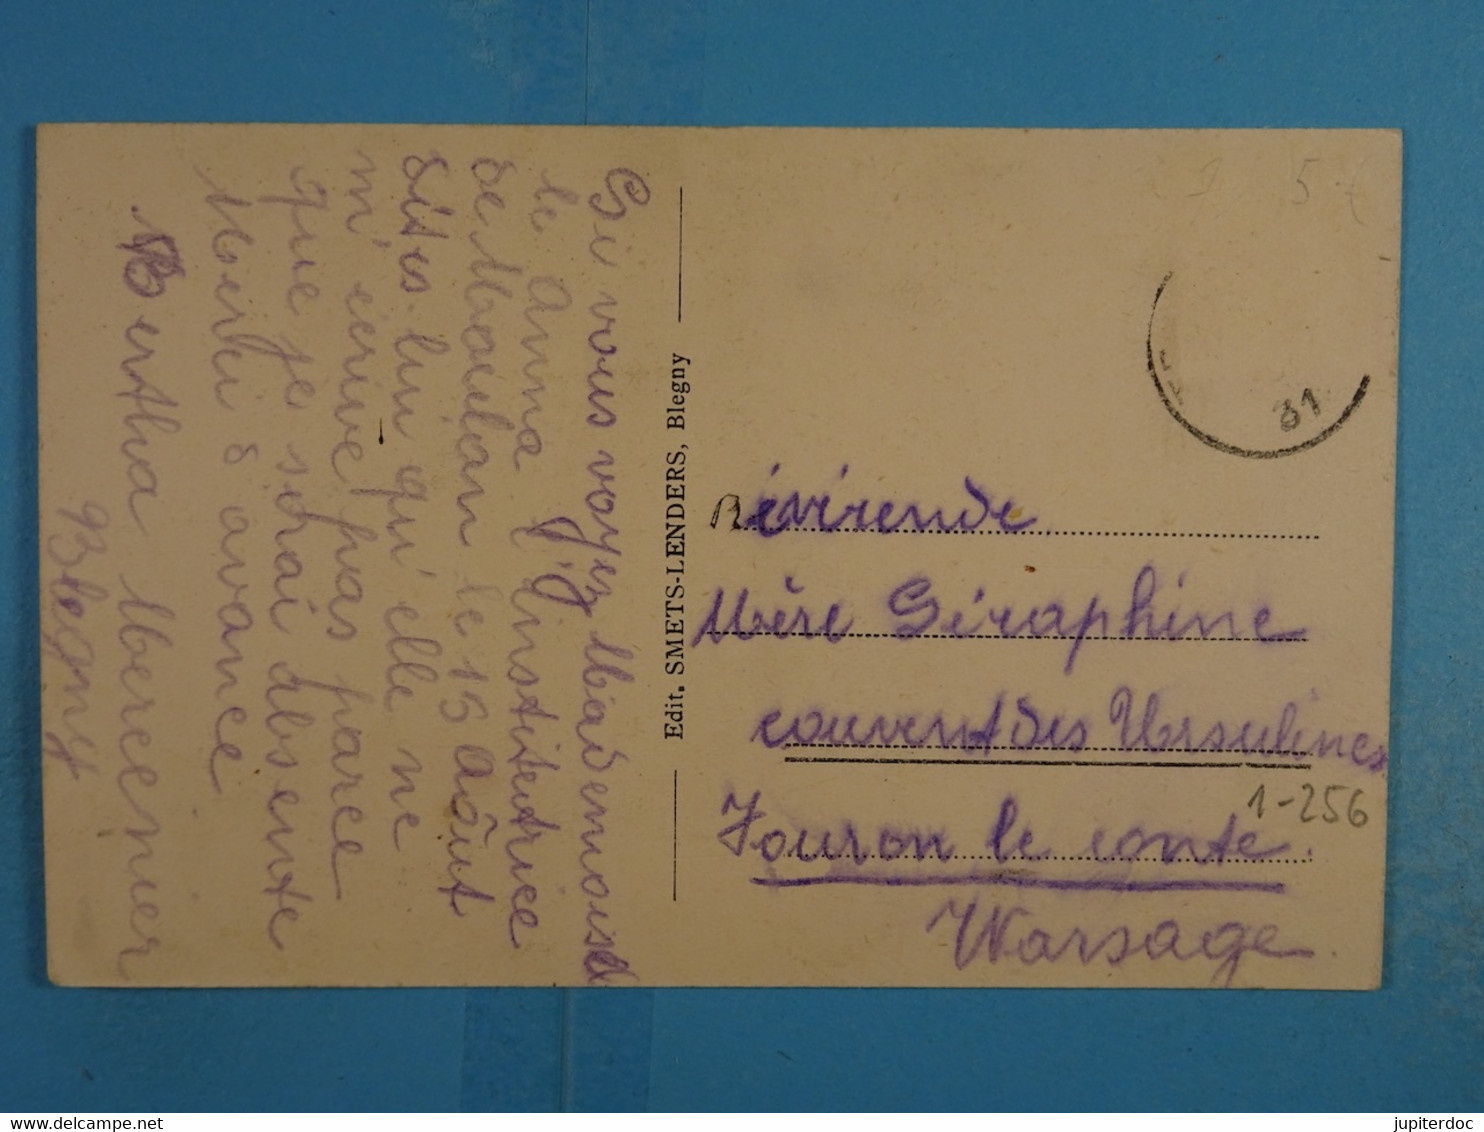 Si vous voyez Mademoisel
le Anna l'institeutrice
de Moulan le 15 Aôut
dites-lui qu'elle ne
m'écrive pas parce
que je serai absente
Merci d avance
Bertha Mercenier
Blegny
Edit. SMETS-LENDERS, Blegny
31
Révérende
Mère Séraphine
couvent des Ursulines
1-256
Fouron le conte
Warsage
jupiterdoc